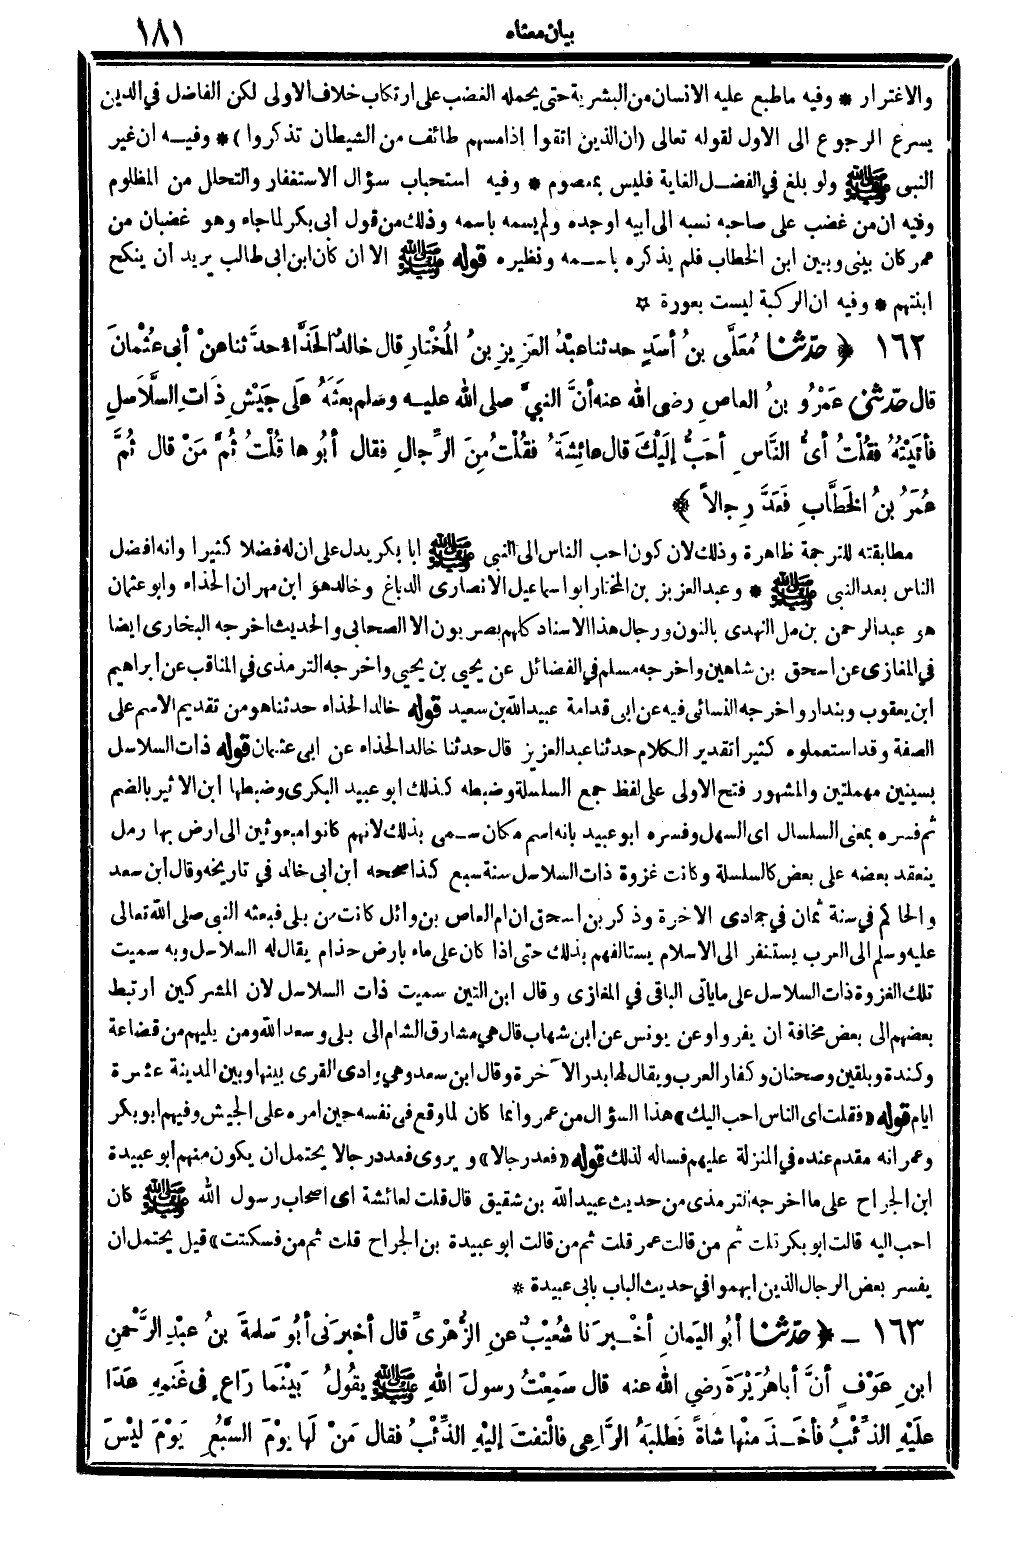 بيان معناه ١٨١
والاغترار * وفيه ماطبع عليه الانسان من البشرية حتى يحمله الغضب على ارتكاب خلاف الاولى لكن الفاضل في الدين
يسرع الرجوع الى الاول لقوله تعالى (ان الذين اتقوا اذا مسهم طائف من الشيطان تذكروا) * وفيه ان غير
النبى ﷺ ولو بلغ في الفضل الغاية فليس بمعصوم * وفيه استحباب سؤال الاستغفار والتحلل من المظلوم
وفيه ان من غضب على صاحبه نسبه الى أبيه اوجده ولم يسمه باسمه وذلك من قول أبى بكر لما جاء وهو غضبان من
عمر كان بينى وبين ابن الخطاب فلم يذكره باسمه ونظيره قوله ﷺ الا ان كان ابن ابى طالب يريد أن ينكح
ابنتهم * وفيه ان الركبة ليست بعورة ☆
١٦٢ ﴿ حدّثنا مُعَلَّى بنُ أسَدٍ حدثنا عبْدُ العَزِيزِ بنُ المُخْتارِ قال خالدٌ الحَذَّاءُ حدَّثنا عنْ أبى عُثْمانَ
قال حدّثنى عَمْرُو بنُ العاصِ رضى الله عنه أنَّ النبيَّ صلى الله عليه وسلم بعثَهُ عَلَى جَيْشِ ذَاتِ السَّلاَسلِ
فأتَيْتُهُ فقُلْتُ أىُّ النَّاسِ أحَبُّ إلَيْكَ قال عائِشَةُ فقُلْتُ مِنَ الرِّجالِ فقال أبُوها قُلْتُ ثُمَّ مَنْ قال ثُمَّ
عُمَرُ بنُ الخَطَّابِ فَعَدَّ رِجالاً ﴾
مطابقته للترجمة ظاهرة وذلك لان كون احب الناس الى النبى ﷺ ابا بكر يدل على ان له فضلا كثيرا وانه افضل
الناس بعد النبى ﷺ * وعبد العزيز بن المختار ابو اسماعيل الانصارى الدباغ وخالد هو ابن مهران الحذاء وابو عثمان
هو عبد الرحمن بن مل النهدى بالنون ورجال هذا الاسناد كلهم بصريون الا الصحابى والحديث اخرجه البخارى ايضا
في المغازى عن اسحق بن شاهين واخرجه مسلم في الفضائل عن يحيى بن يحيى واخرجه الترمذى في المناقب عن ابراهيم
ابن يعقوب وبندار واخرجه النسائى فيه عن ابى قدامة عبيد الله بن سعيد قوله خالد الحذاء حدثنا هو من تقديم الاسم على
الصفة وقد استعملوه كثيرا تقدير الكلام حدثنا عبد العزيز قال حدثنا خالد الحذاء عن ابى عثمان قوله ذات السلاسل
بسينين مهملتين والمشهور فتح الاولى على لفظ جمع السلسلة وضبطه كذلك ابو عبيد البكرى وضبطها ابن الاثير بالضم
ثم فسره بمعنى السلسال اى السهل وفسره ابو عبيد بانه اسم مكان سمى بذلك لانهم كانوا مبعوثين الى ارض بها رمل
ينعقد بعضه على بعض كالسلسلة وكانت غزوة ذات السلاسل سنة سبع كذا صححه ابن ابى خالد في تاريخه وقال ابن سعد
والحاكم في سنة ثمان في جمادى الاخرة وذكر بن اسحق ان ام العاص بن وائل كانت من بلى فبعثه النبى صلى الله تعالى
عليه وسلم الى العرب يستنفر الى الاسلام يستالفهم بذلك حتى اذا كان على ماء بارض جذام يقال له السلاسل وبه سميت
تلك الغزوة ذات السلاسل على ما ياتى الباقى في المغازى وقال ابن التين سميت ذات السلاسل لان المشركين ارتبط
بعضهم الى بعض مخافة ان يفروا وعن يونس عن ابن شهاب قال هي مشارق الشام الى بلى وسعد الله ومن يليهم من قضاعة
وكندة وبلقين وصحنان وكفار العرب ويقال لها بدر الآخرة وقال ابن سعد وهي وادى القرى بينها وبين المدينة عشرة
ايام قوله «فقلت اى الناس احب اليك» هذا السؤال من عمرو انما كان لما وقع في نفسه حين امره على الجيش وفيهم ابو بكر
وعمر انه مقدم عنده في المنزلة عليهم فساله لذلك قوله «فعد رجالا» ويروى فعدد رجالا يحتمل ان يكون منهم أبو عبيدة
ابن الجراح على ما اخرجه الترمذى من حديث عبيد الله بن شقيق قال قلت لعائشة اى اصحاب رسول الله ﷺ كان
احب اليه قالت ابو بكر قلت ثم من قالت عمر قلت ثم من قالت ابو عبيدة بن الجراح قلت ثم من فسكتت» قيل يحتمل ان
يفسر بعض الرجال الذين ابهموا في حديث الباب بابى عبيدة *
١٦٣ ـ ﴿ حدّثنا أبُو اليَمانِ أخْبرَنا شُعَيْبٌ عنِ الزُّهْرِىِّ قال أخبرَنى أبُو سَلمةَ بنُ عبْدِ الرَّحْمنِ
ابنِ عَوْفٍ أنَّ أباهُرَيْرَةَ رضي الله عنه قال سَمِعْتُ رسولَ اللهِ ﷺ يقُولُ بَيْنَما رَاعٍ فى غَنمِهِ عَدَا
علَيْهِ الذِّئْبُ فأخَذَ منْها شاةً فَطلبَهُ الرَّاعِى فالْتفتَ إليْهِ الذِّئْبُ فقال مَنْ لَها يوْمَ السَّبُعِ يَوْمَ ليْسَ